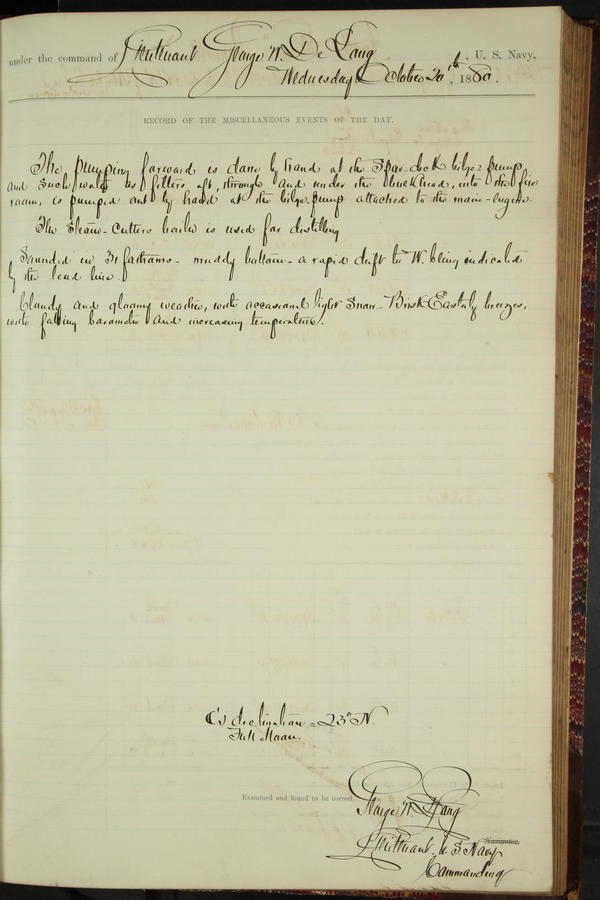 under the command of Lieutenant George W. De Long, U. S. Navy,
Wednesday October 20th, 1880.
RECORD OF THE MISCELLANEOUS EVENTS OF THE DAY.
The pumping forward is done by hand at the Spar-deck bilge pump,
and such water as filters aft, through and under the bulkhead, into the fire
room, is pumped out by hand at the bilge pump attached to the main-engine.
The Steam-Cutters boiler is used for distilling
Sounded in 31 fathoms - muddy bottom - a rapid drift to W. being indicated
by the lead line
Cloudy and gloomy weather, with occasional light snow - Brisk Easterly breezes,
with falling barometer and increasing temperature.
☾'s declination = 23° N.
Full Moon.
Examined and found to be correct.
George W. De Long
Navigator.
Lieutenant, U. S. Navy
Commanding